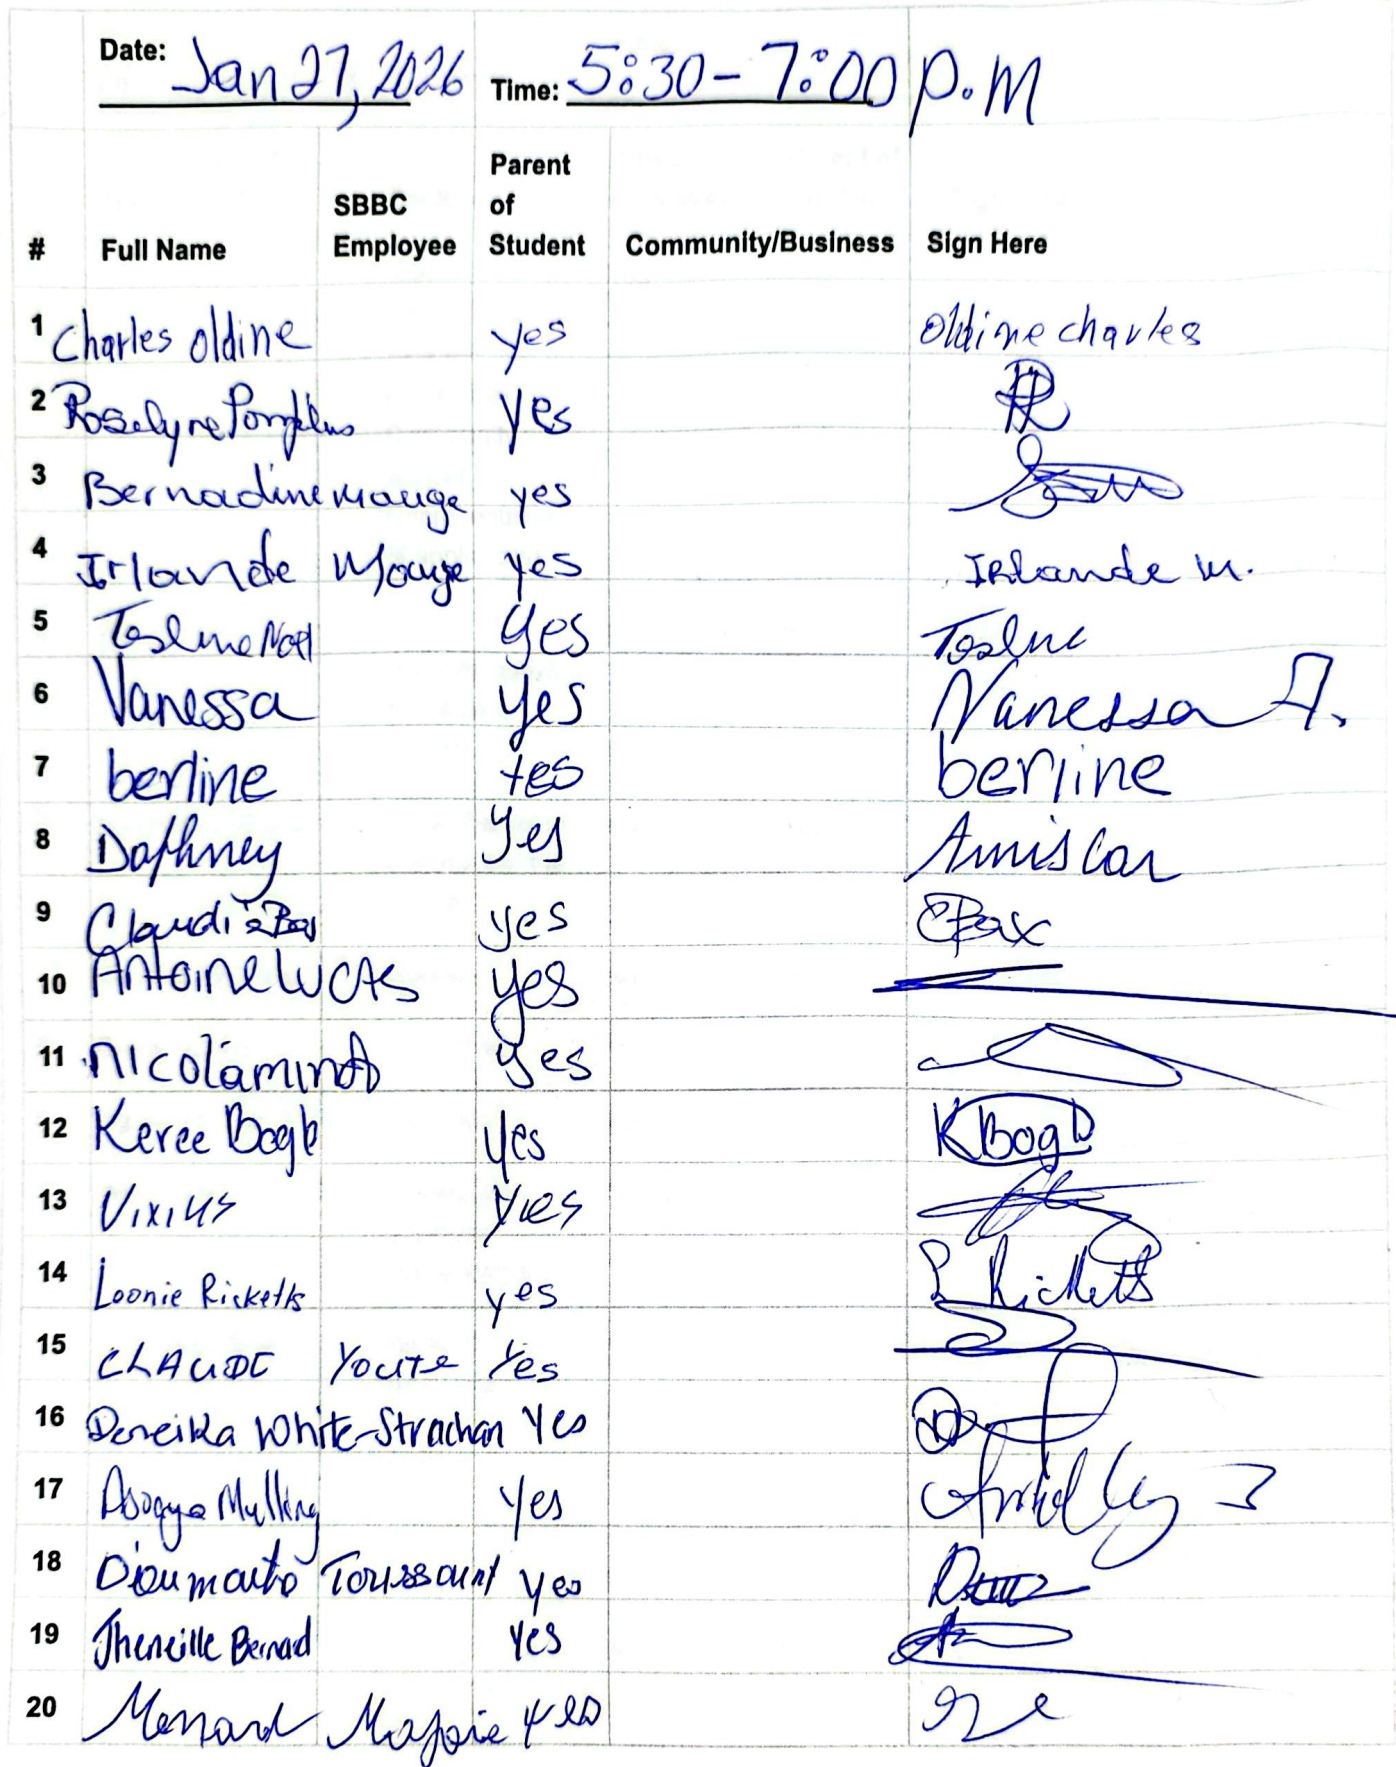 Date: Jan 27, 2026 Time: 5:30 - 7:00 p.m
# Full Name SBBC Employee Parent of Student Community/Business Sign Here
1 Charles oldine yes oldine charles
2 Roselyne yes
3 Bernadine mauge yes
4 Irlande Mauge yes Irlande m.
5 Noel yes
6 Vanessa yes Vanessa A.
7 berline yes berline
8 Daphney yes Amiscar
9 Claudia yes
10 Antoine Lucas yes
11 yes
12 Keree Bogle yes KBogle
13 Vixius yies
14 Loonie Ricketts yes L Ricketts
15 CLAUDE Youte Yes
16 Dereika White-Strachan Yes
17 Yes
18 Toussaint yes
19 Jheneille Bernard Yes
20 Menard yes